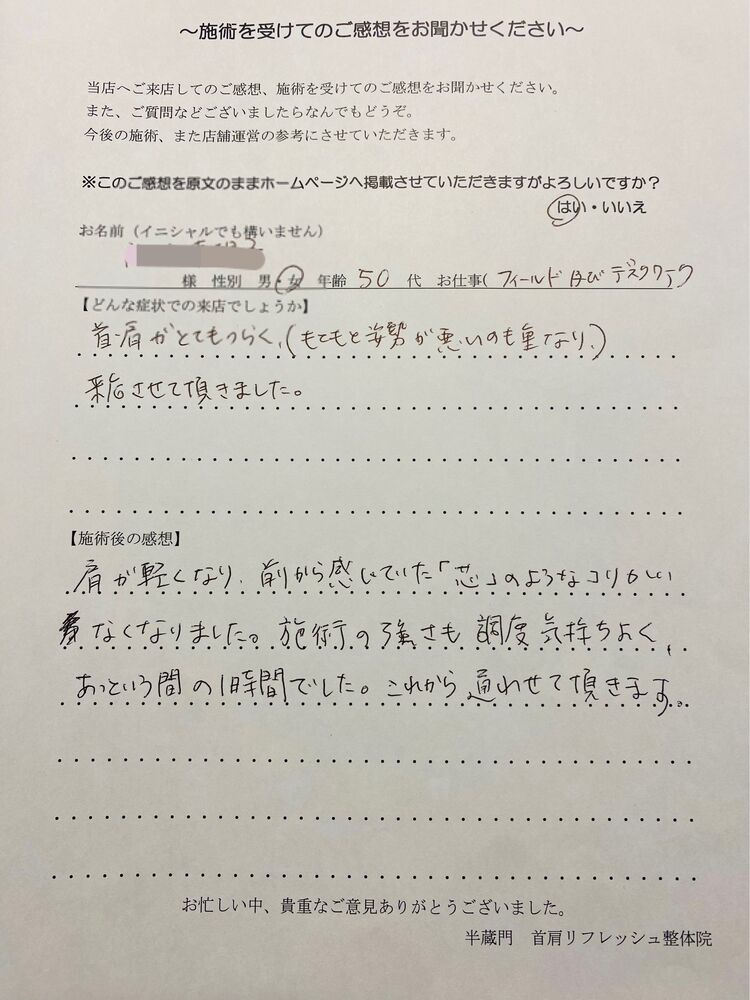 ～施術を受けてのご感想をお聞かせください～
当店へご来店してのご感想、施術を受けてのご感想をお聞かせください。
また、ご質問などございましたらなんでもどうぞ。
今後の施術、また店舗運営の参考にさせていただきます。
※このご感想を原文のままホームページへ掲載させていただきますがよろしいですか？
はい・いいえ
お名前（イニシャルでも構いません）
様 性別 男・女 年齢 50 代 お仕事( フィールド及びデスクワーク
【どんな症状での来店でしょうか】
首・肩がとてもつらく、(もともと姿勢が悪いのも重なり、)
来店させて頂きました。
【施術後の感想】
肩が軽くなり、前から感じていた「芯」のようなコリがい
なくなりました。施術の強さも調度気持ちよく、
あっという間の1時間でした。これから通わせて頂きます。
お忙しい中、貴重なご意見ありがとうございました。
半蔵門 首肩リフレッシュ整体院